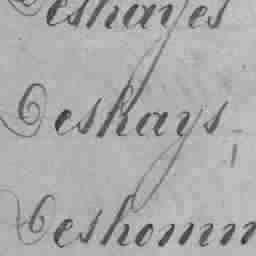 Deshayes
Deshays
Deshomm